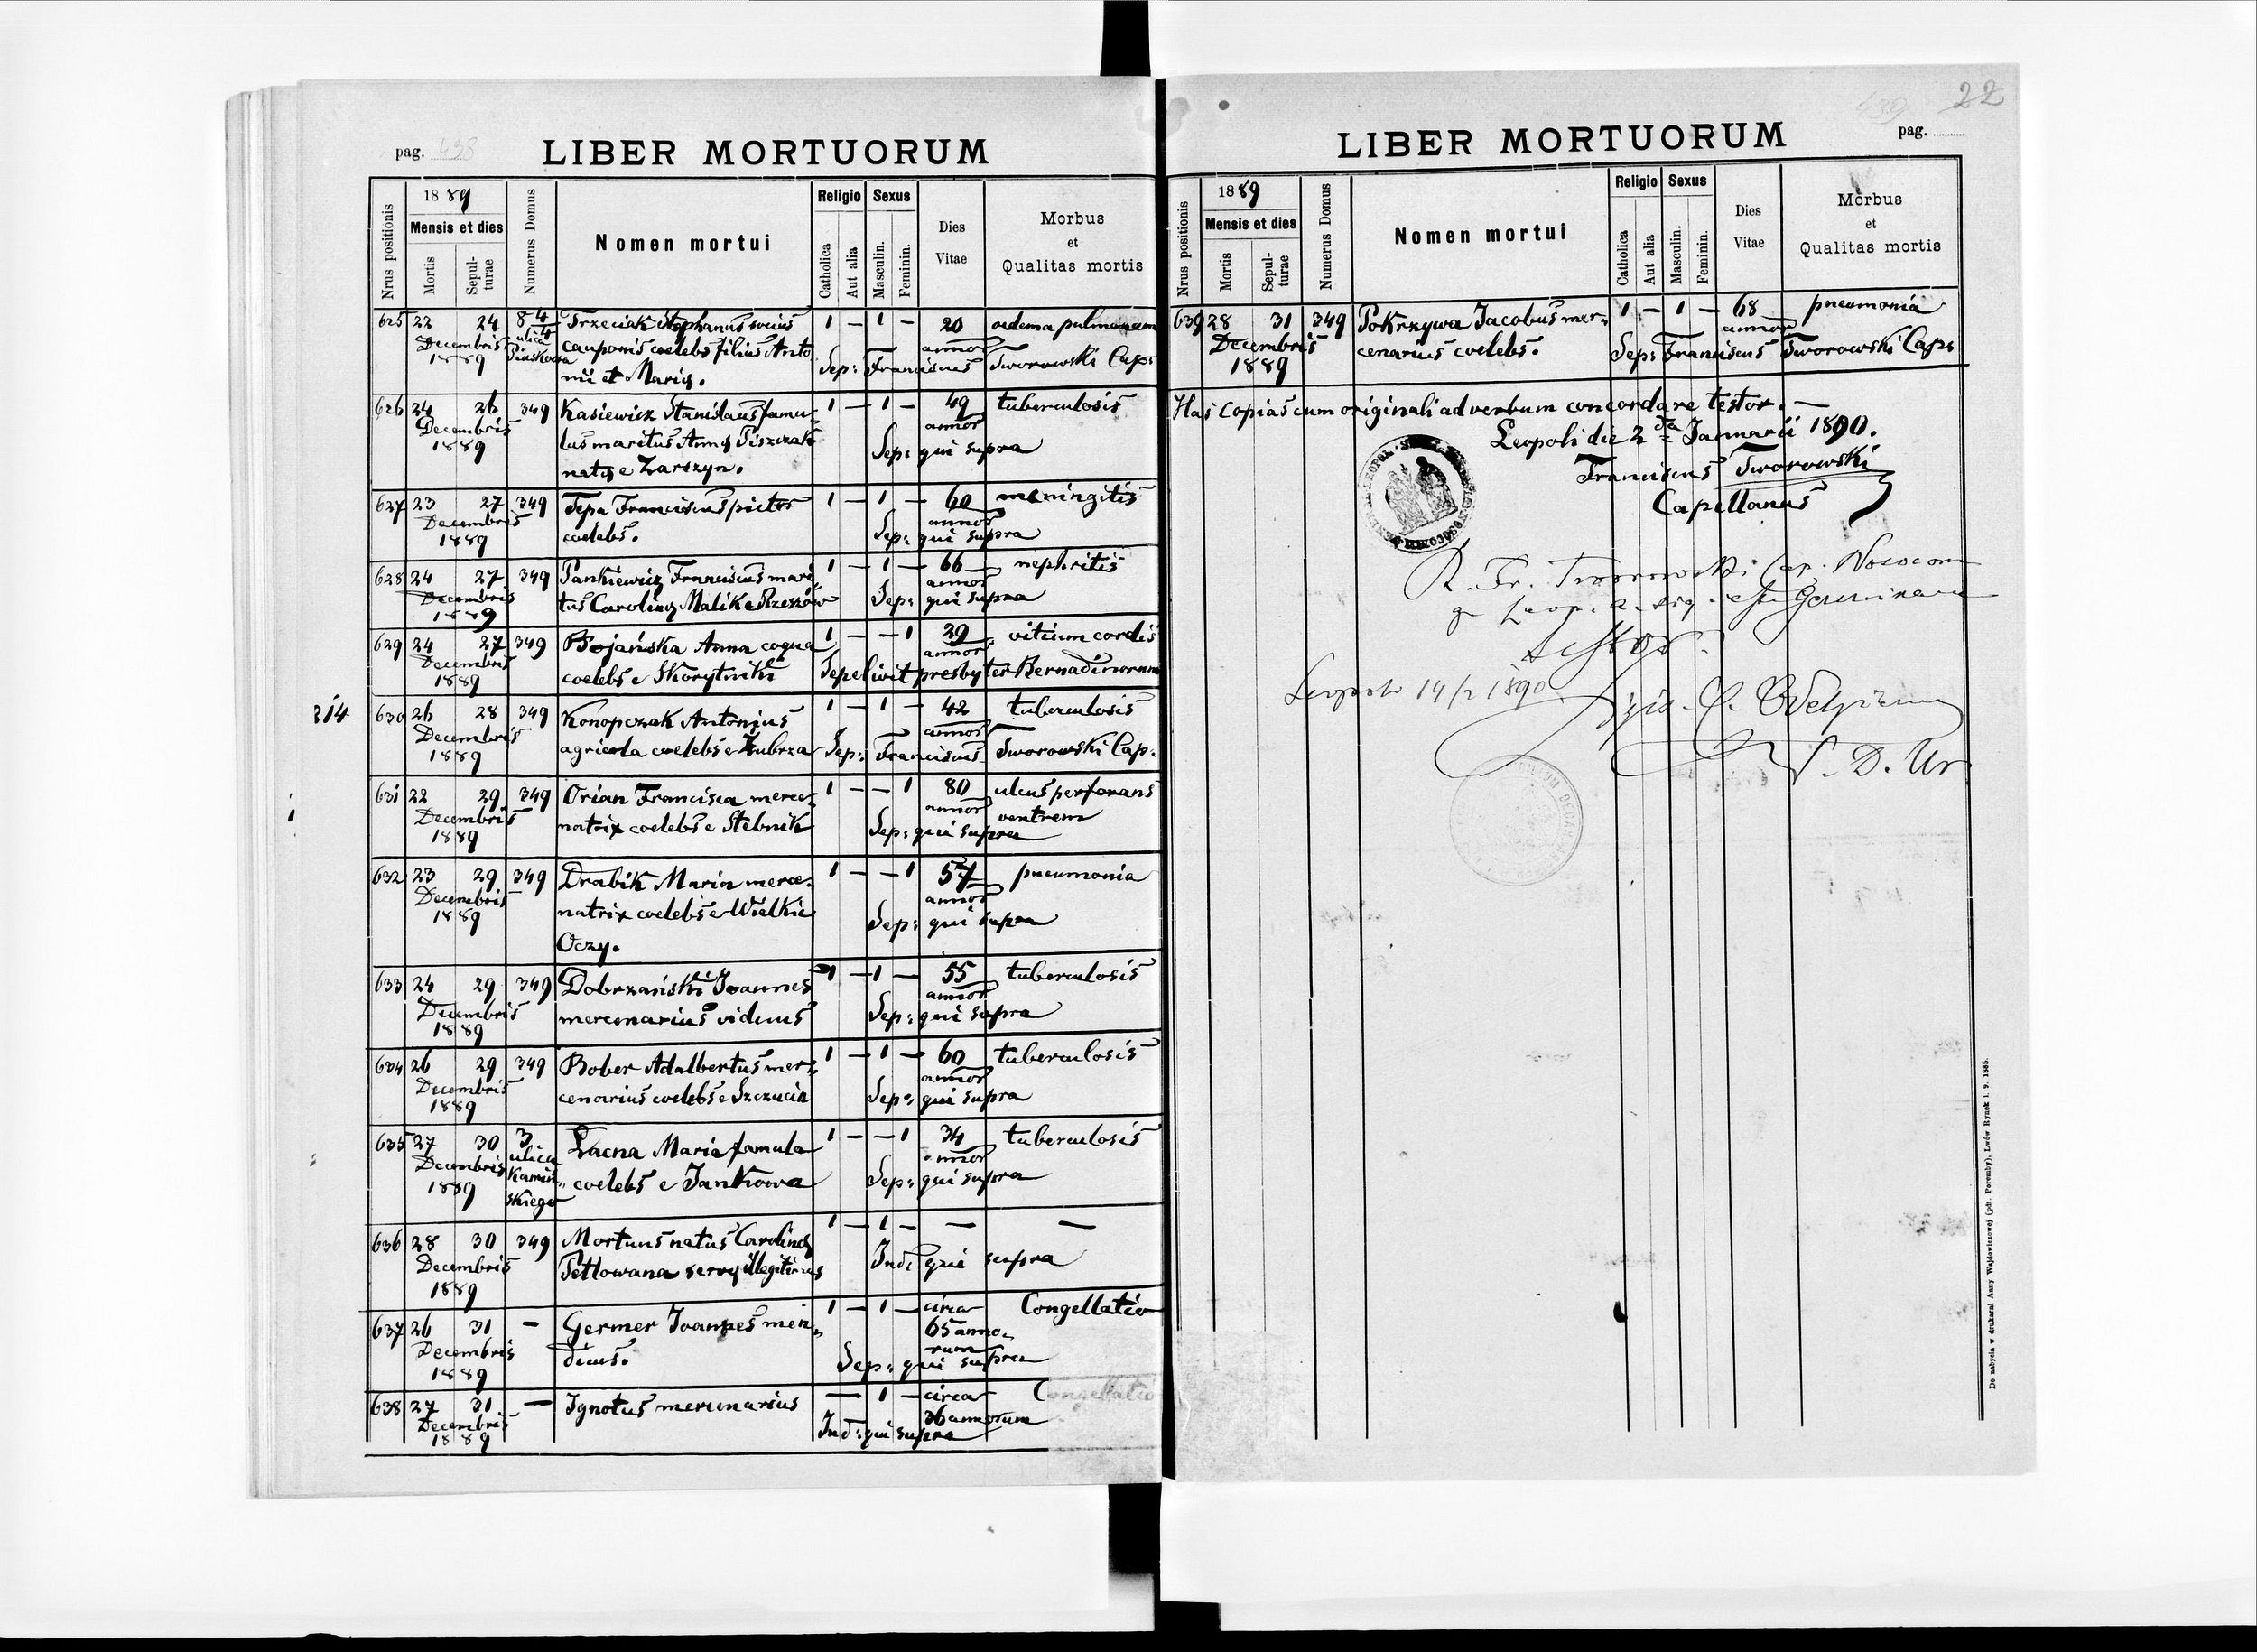 pag. 438
LIBER MORTUORUM
Nrus positionis
1889
Mensis et dies
Mortis
Sepul-
turae
Numerus Domus
Nomen mortui
Religio
Catholica
Aut alia
Sexus
Masculin.
Feminin.
Dies
Vitae
Morbus
et
Qualitas mortis
625 22 24 8 4/4 Trzeciak Stephanus socius 1 — 1 — 20 oedema pulmonum
Decembris ulica cauponis coelebs filius Anto annor
1889 Pińskova nii et Mariæ. Sep: Franciscus Tworowski Cap:
626 24 26 349 Kasiewicz Stanislaus famu- 1 — 1 — 49 tuberculosis
Decembris lus maritus Annæ Piszczak annor
1889 natæ e Zarszyn. Sep: qui supra
627 23 27 349 Tepa Franciscus pictor 1 — 1 — 60 meningitis
Decembris coelebs. annor
1889 Sep: qui supra
628 24 27 349 Pankiewicz Franciscus mari- 1 — 1 — 66 nephritis
Decembris tus Carolinæ Malik e Rzeszów annor
1889 Sep: qui supra
629 24 27 349 Bojańska Anna coqua 1 — — 1 29 vitium cordis
Decembris coelebs e Skorytniki annor
1889 Sepelivit presbyter Bernadinorum
314
630 26 28 349 Konopczak Antonius 1 — 1 — 42 tuberculosis
Decembris agricola coelebs e Zubrza annor
1889 Sep: Franciscus Tworowski Cap.
631 22 29 349 Orian Francisca merce- 1 — — 1 80 ulcus perforans
Decembris natrix coelebs e Stebnik annor ventrem
1889 Sep: qui supra
632 23 29 349 Drabik Maria merce- 1 — — 1 57 pneumonia
Decembris natrix coelebs e Wielkie annor
1889 Oczy. Sep: qui supra
633 24 29 349 Dobrzański Joannes 1 — 1 — 55 tuberculosis
Decembris mercenarius viduus annor
1889 Sep: qui supra
634 26 29 349 Bober Adalbertus mer- 1 — 1 — 60 tuberculosis
Decembris cenarius coelebs e Szczucin annor
1889 Sep: qui supra
635 27 30 3 Łacna Maria famula 1 — — 1 34 tuberculosis
Decembris ulica coelebs e Jankowa annor
1889 Kamiń- Sep: qui supra
skiego
636 28 30 349 Mortuus natus Carolinæ 1 — 1 — — —
Decembris Petlowana servæ illegitimus
1889 Ind: qui supra
637 26 31 — Germer Joannes men- 1 — 1 — circa Congellatio
Decembris dicus. 65 anno-
1889 rum
Sep: qui supra
638 27 31 — Ignotus mercenarius — 1 — circa Congellatio
Decembris 36 annorum
1889 Ind: qui supra
22
439
pag.
LIBER MORTUORUM
Nrus positionis
1889
Mensis et dies
Mortis
Sepul-
turae
Numerus Domus
Nomen mortui
Religio
Catholica
Aut alia
Sexus
Masculin.
Feminin.
Dies
Vitae
Morbus
et
Qualitas mortis
639 28 31 349 Pokrzywa Jacobus mer- 1 — 1 — 68 pneumonia
Decembris cenarius coelebs. annor
1889 Sep: Franciscus Tworowski Cap:
Has copias cum originali ad verbum concordare testor. —
Leopoli die 2da Januarii 1890.
Franciscus Tworowski
Capellanus
R. Fr. Tworowski Cap. Nosocom
testor.
Leopoli 14/2 1890
De nabycia w drukarni Anny Wajdowiczowej (pdt. Poremby), Lwów Rynek l. 9. 1885.